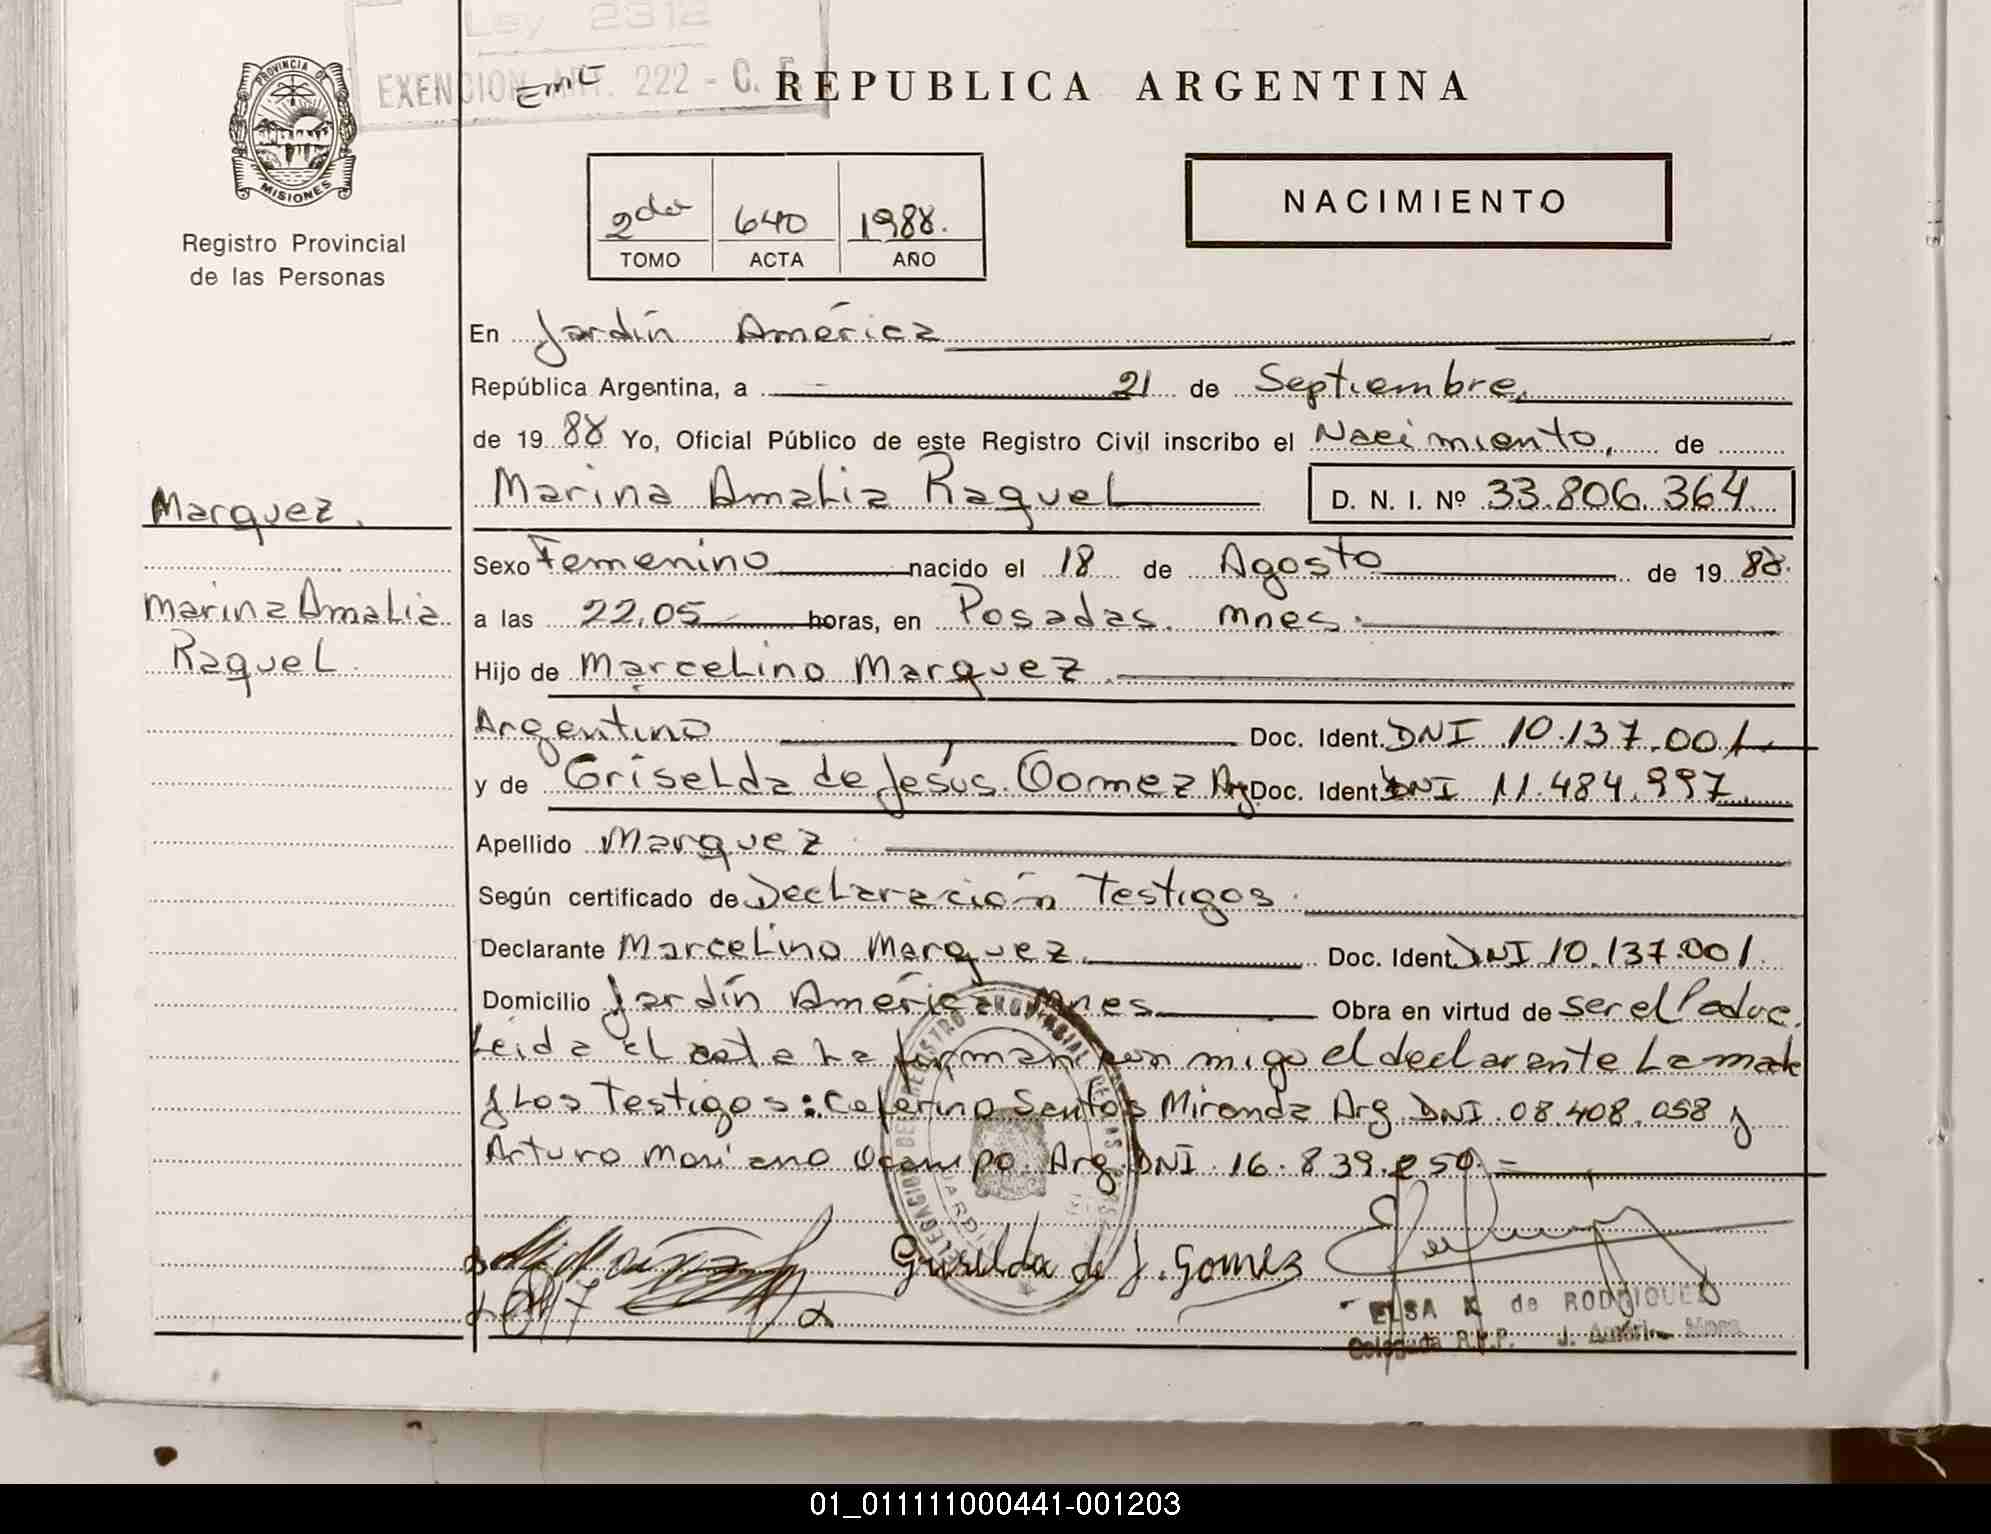 Ley 2312
EXENCION ART. 222 - C. F.
REPUBLICA ARGENTINA
PROVINCIA DE
MISIONES
Registro Provincial
de las Personas
2da 640 1988.
TOMO ACTA AÑO
NACIMIENTO
En Jardín América
República Argentina, a 21 de Septiembre,
de 1988 Yo, Oficial Público de este Registro Civil inscribo el Nacimiento, de
Marina Amalia Raquel D. N. I. Nº 33.806.364
Marquez.
Marina Amalia
Raquel
Sexo Femenino nacido el 18 de Agosto de 1988.
a las 22.05 horas, en Posadas. Mnes.
Hijo de Marcelino Marquez
Argentino Doc. Ident. DNI 10.137.001
y de Griselda de Jesús Gomez Arg Doc. Ident DNI 11.484.997
Apellido Marquez
Según certificado de Declaración Testigos
Declarante Marcelino Marquez Doc. Ident DNI 10.137.001.
Domicilio Jardín América Mnes Obra en virtud de ser el Padre.
Leida el acta la firman con migo el declarante La madre
y Los Testigos: Ceferino Santos Miranda Arg. DNI. 08.408.058 y
Arturo Mariano Ocampo. Arg. DNI. 16.839.250.=
Griselda de J. Gomez
ELSA K de RODRIGUEZ
Delegada R.P.P. J. Améri. Mnes.
01_011111000441-001203